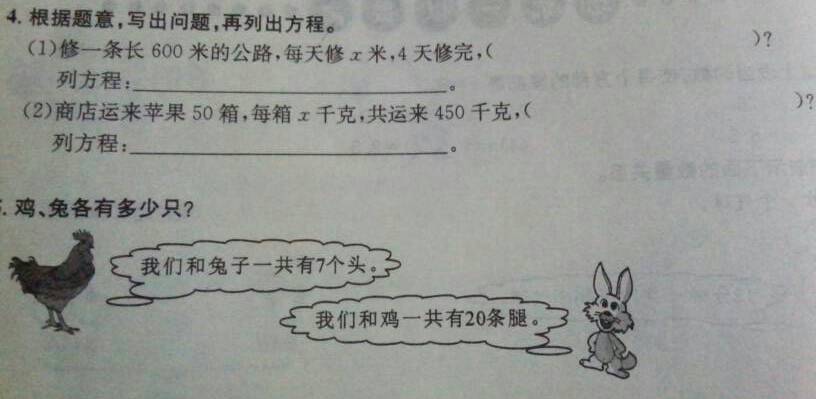 4. 根据题意,写出问题,再列出方程。
(1)修一条长 600 米的公路,每天修 x 米,4 天修完,( )?
列方程:____________________。
(2)商店运来苹果 50 箱,每箱 x 千克,共运来 450 千克,( )?
列方程:____________________。
. 鸡、兔各有多少只?
我们和兔子一共有7个头。
我们和鸡一共有20条腿。